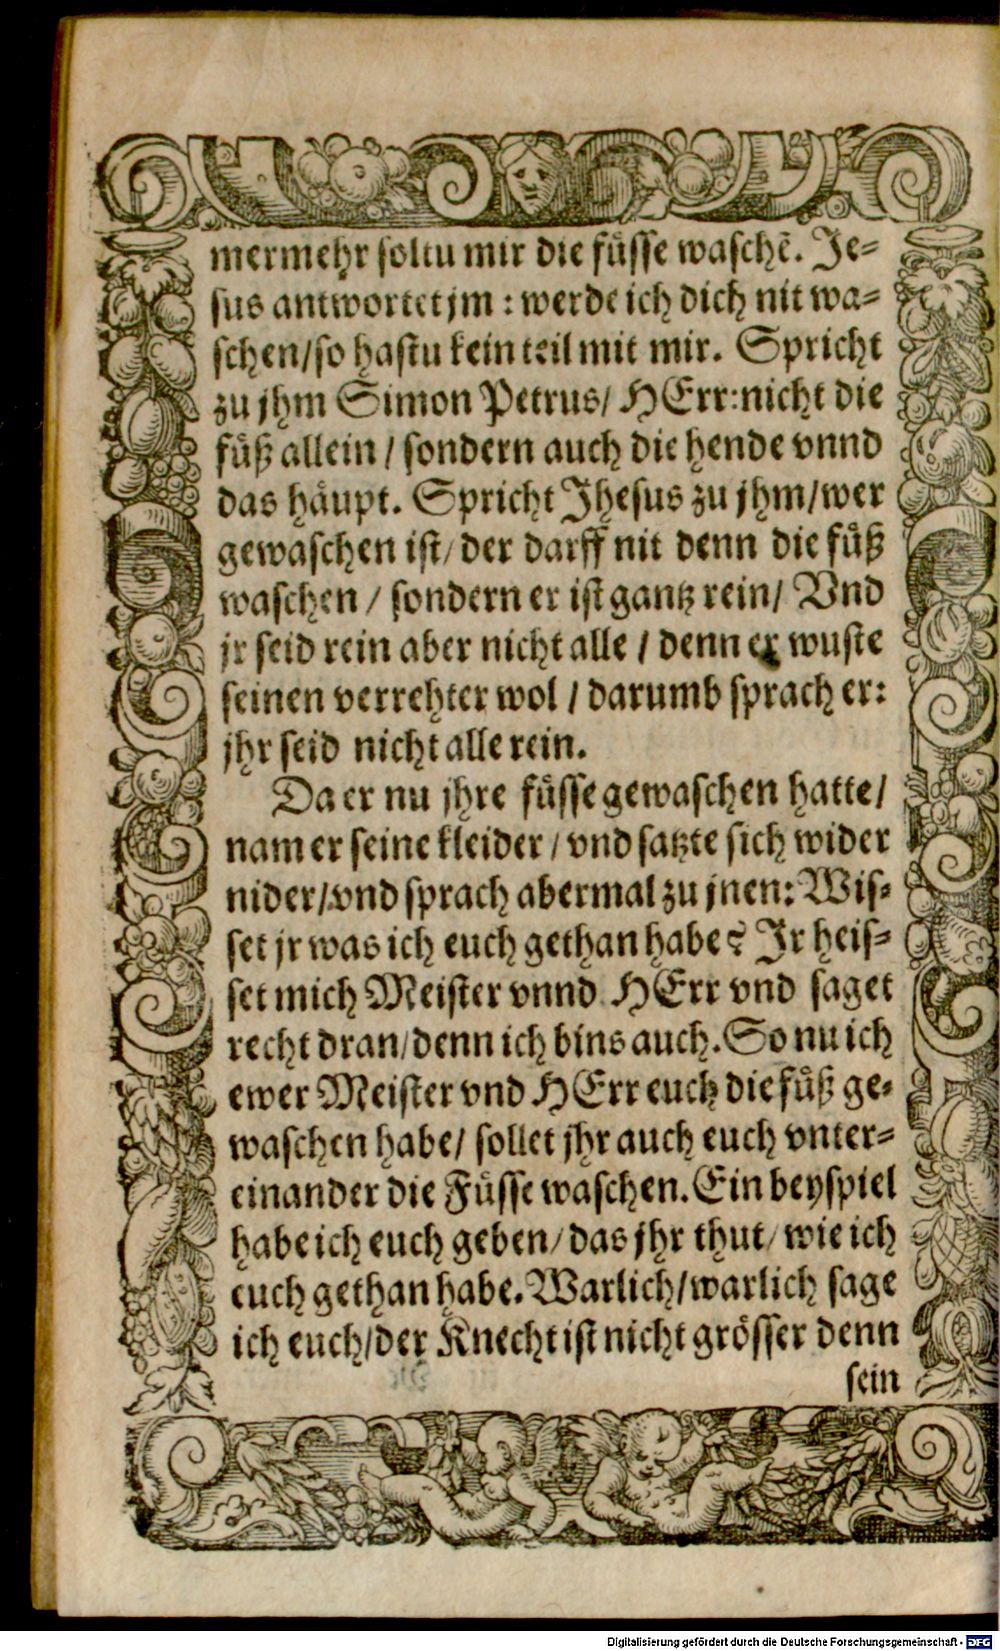 mermehr soltu mir die fuͤsse waschẽ. Je-
sus antwortet jm : werde ich dich nit wa-
schen/so hastu kein teil mit mir. Spricht
zu jhm Simon Petrus/ HErr:nicht die
fuͤß allein / sondern auch die hende vnnd
das haͤupt. Spricht Jhesus zu jhm/wer
gewaschen ist/ der darff nit denn die fuͤß
waschen / sondern er ist gantz rein/ Vnd
jr seid rein aber nicht alle / denn er wuste
seinen verrehter wol / darumb sprach er:
jhr seid nicht alle rein.
Da er nu jhre fuͤsse gewaschen hatte/
nam er seine kleider / vnd satzte sich wider
nider/vnd sprach abermal zu jnen: Wis-
set jr was ich euch gethan habe? Ir heis-
set mich Meister vnnd HErr vnd saget
recht dran/denn ich bins auch. So nu ich
ewer Meister vnd HErr euch die fuͤß ge-
waschen habe/ sollet jhr auch euch vnter-
einander die Fuͤsse waschen. Ein beyspiel
habe ich euch geben/ das jhr thut/ wie ich
euch gethan habe. Warlich/warlich sage
ich euch/der Knecht ist nicht groͤsser denn
sein
Digitalisierung gefördert durch die Deutsche Forschungsgemeinschaft - DFG